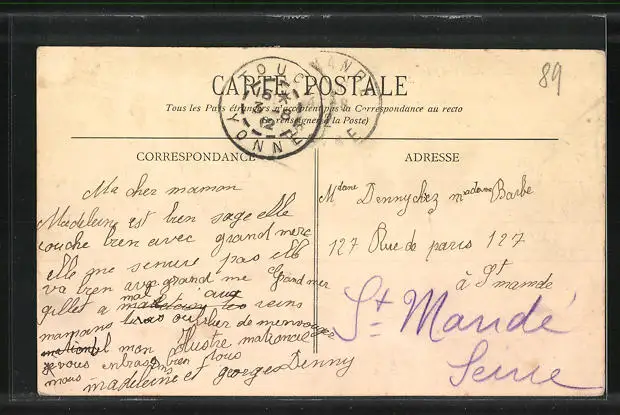 89
CARTE POSTALE
Tous les Pays étrangers n'acceptent pas la Correspondance au recto
(Se renseigner à la Poste)
TOUCY
YONNE
CORRESPONDANCE
Ma cher maman
Madeleine est bien sage elle
couche bien avec grand merc
elle me senuie pas elle
va bien avec grand me Grand mer
gillet a mal aux reins
mamans oublier de menvoyer
mon Illustre national
je vous enbrasons bien tous
madeleine et georges Denny
ADRESSE
Mdame Denny chez madame Barbe
127 Rue de paris 127
à St mande
St Mandé
Seine